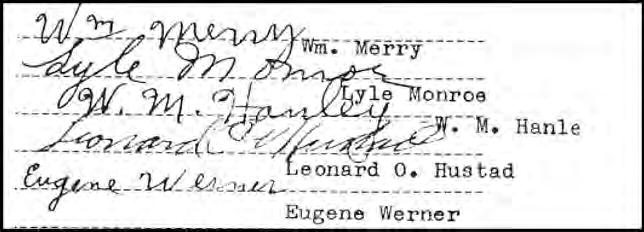 Wm Merry
Wm. Merry
Lyle Monroe
Lyle Monroe
W. M. Hanley
W. M. Hanle
Leonard O Hustad
Leonard O. Hustad
Eugene Werner
Eugene Werner